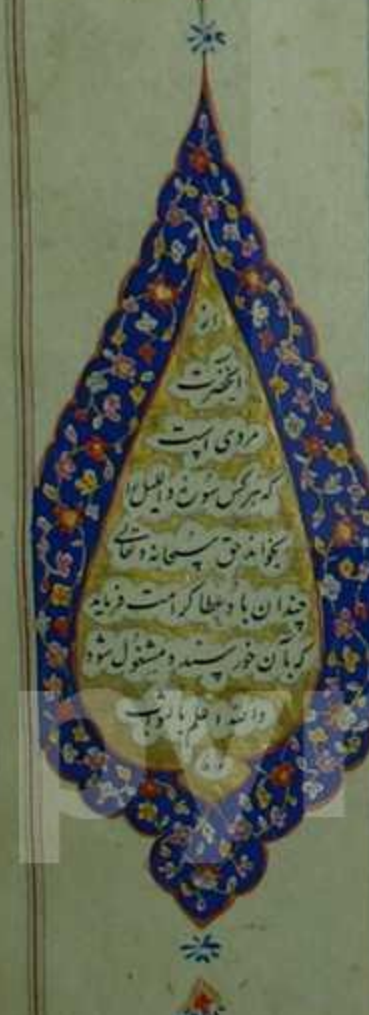 از
آنحضرت
مرویست
که هر کس سورهٔ واللیل را
بخواند حق سبحانه و تعالی
چندان باو عطا کرامت فرماید
که بآن خورسند و مشغول شود
والله اعلم بالصواب
pyr